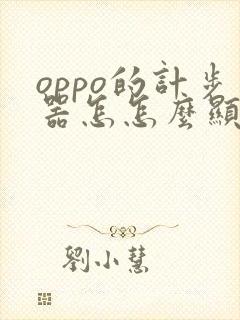 oppo的計步
器怎怎麼顯
劉小慧